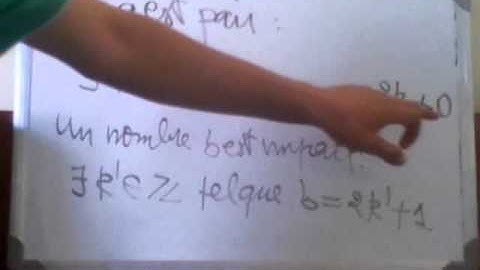 a est pair :
2k+0
un nombre b est impair :
∃ k' ∈ ℤ tel que b = 2k'+1